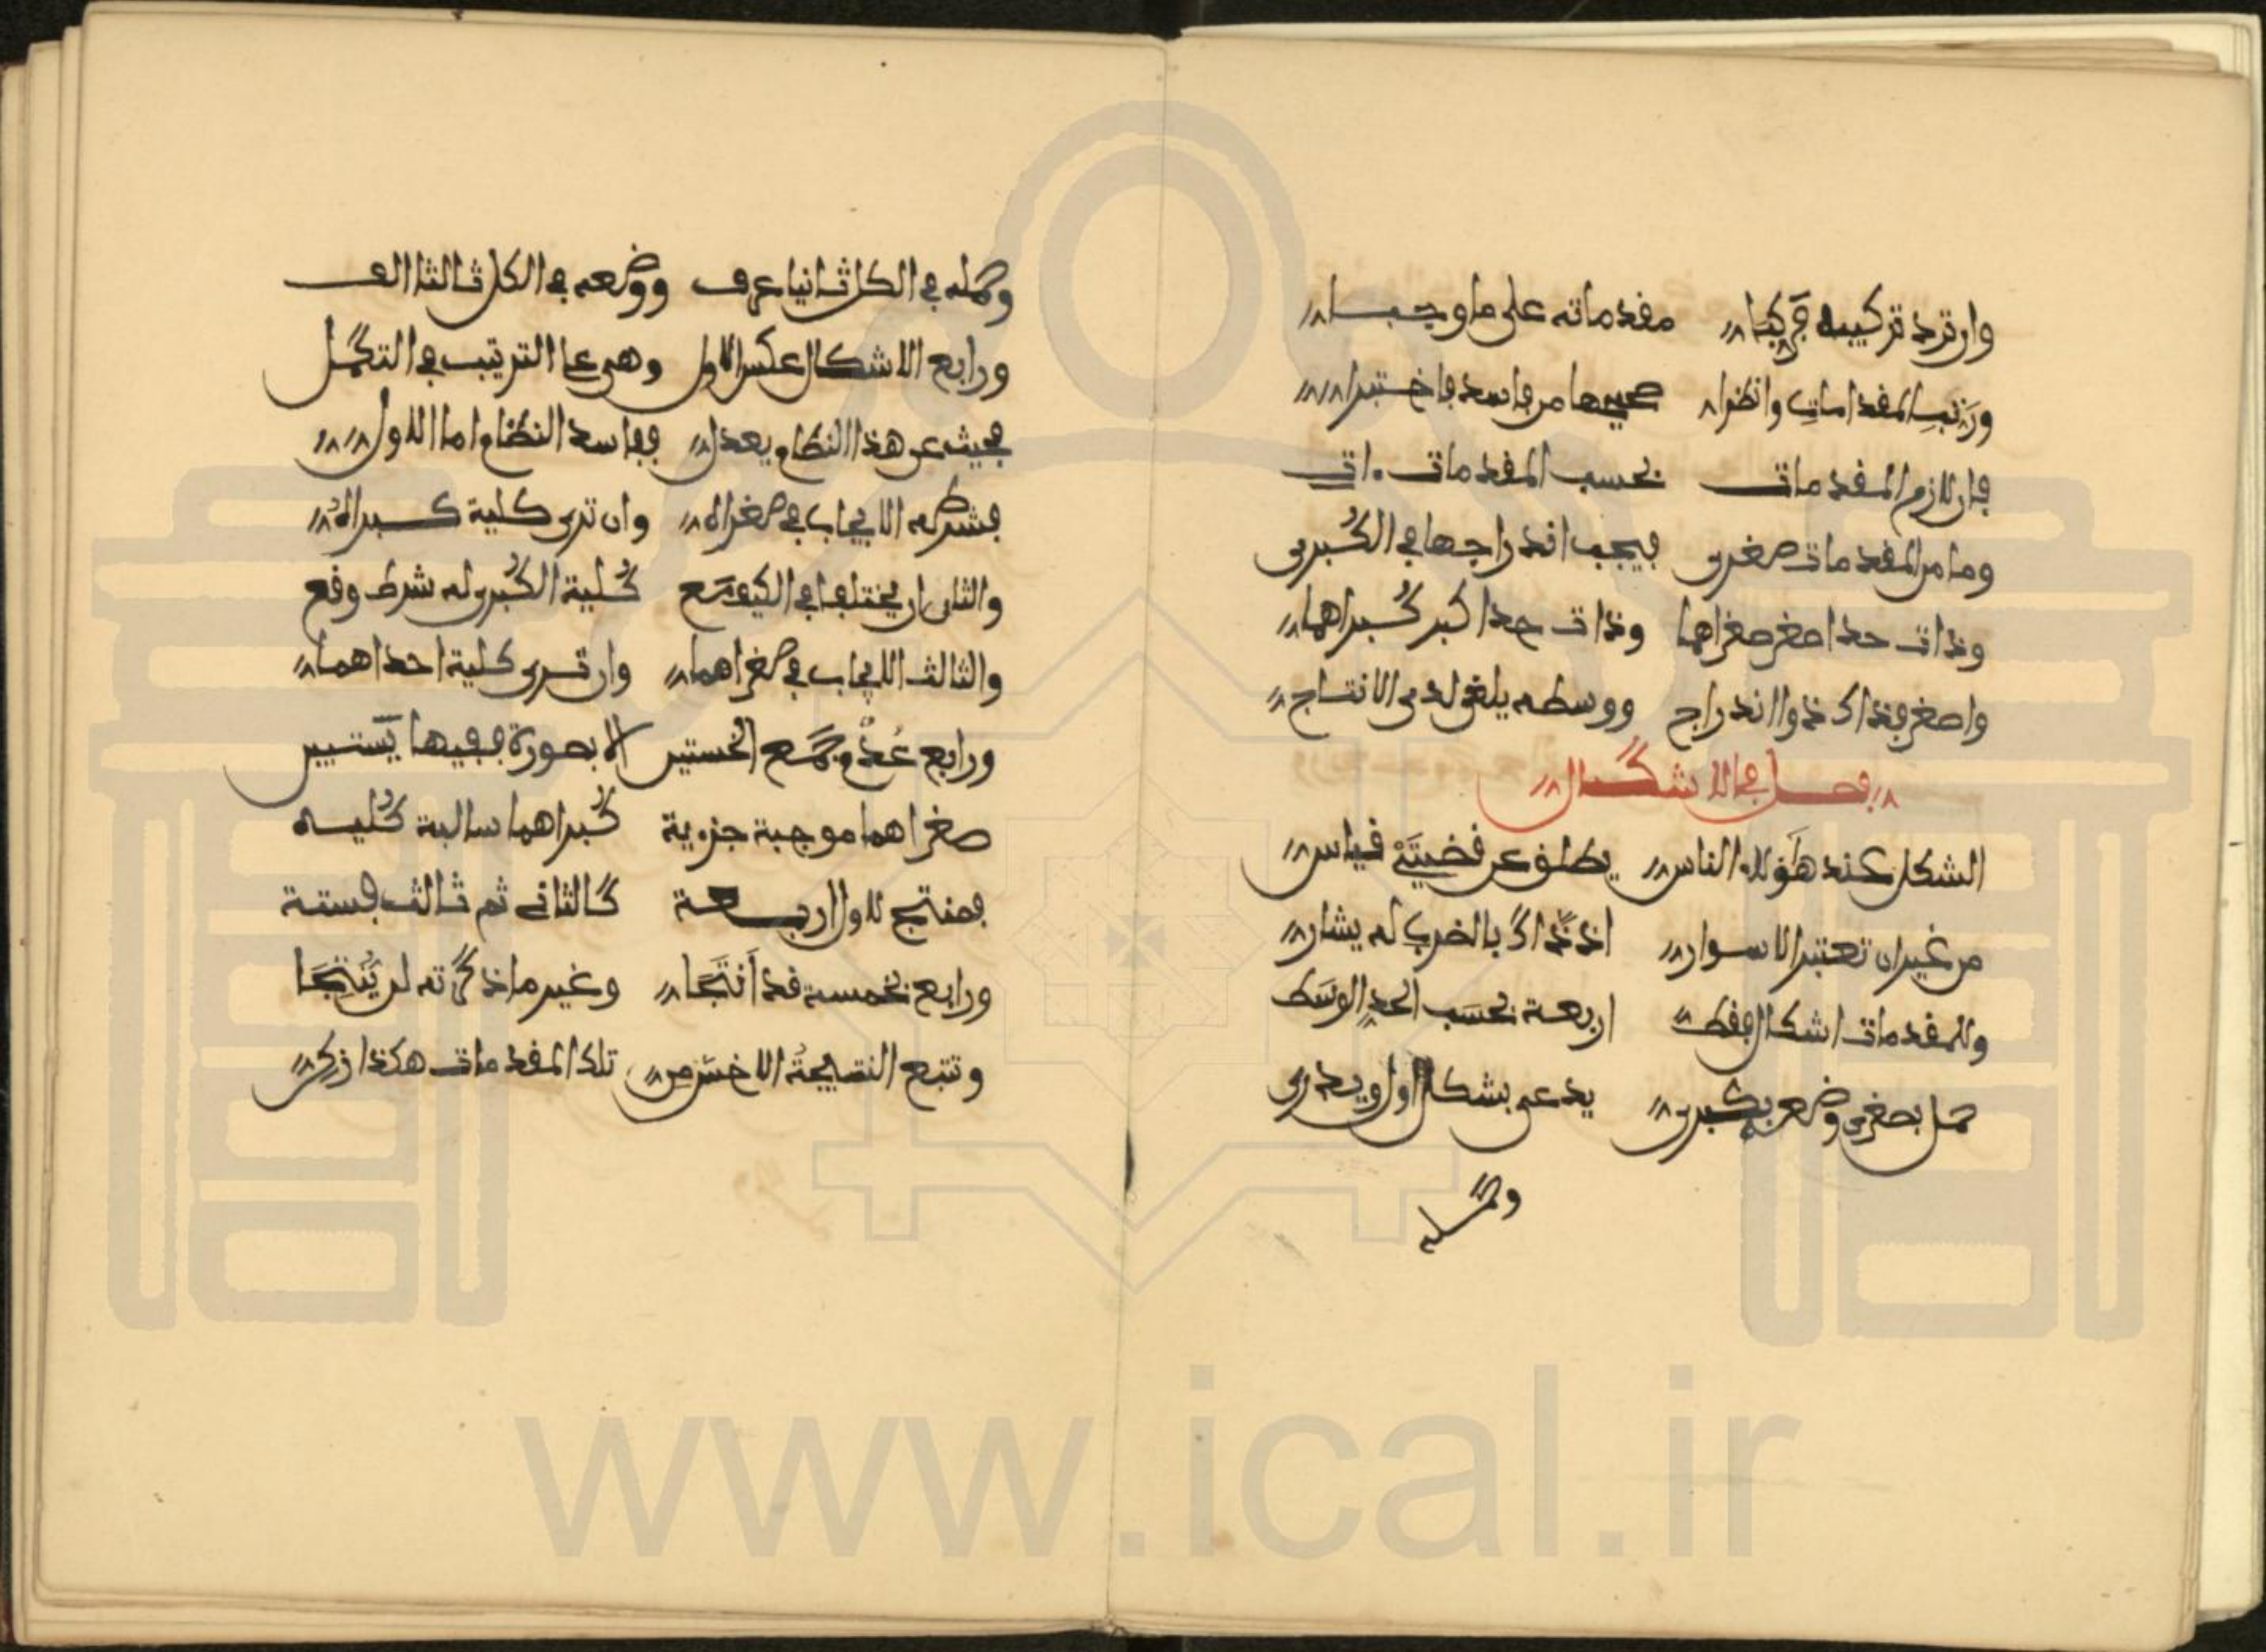 وان ترد تركيبه فركبا مقدماته على ما وجبا
ورتب المقدمات وانظرا صحيحها من فاسد فاختبرا
فإن لازم المقدمات بحسب المقدمات ءات
وما من المقدمات صغرى فيجب اندراجها في الكبرى
وذات حد اصغر صغراهما وذات حد اكبر كبراهما
واصغر فذاك ذو اندراج ووسط يلغى لدى الانتاج
فصل في الاشكال
الشكل عند هؤلاء الناس يطلق عن قضيتي قياس
من غير ان تعتبر الاسوار اذ ذاك بالضرب له يشار
وللمقدمات اشكال فقط اربعة بحسب الحد الوسط
حمل بصغرى وضع بكبرى يدعى بشكل اول ويدرى
وحمله
وحمله في الكل ثانيا عرف ووضعه في الكل ثالثا الف
ورابع الاشكال عكس الاول وهي على الترتيب في التكمل
فحيث عن هذا النظام يعدل ففاسد النظام اما الاول
فشرطه الايجاب في صغراه وان ترى كلية كبراه
والثان ان يختلفا في الكيف مع كلية الكبرى له شرط وقع
والثالث الايجاب في صغراهما وان ترى كلية احداهما
ورابع عدم جمع الخستين الا بصورة ففيها يستبين
صغراهما موجبة جزءية كبراهما سالبة كليه
فمنتج لاول اربعة كالثاني ثم ثالث فستة
ورابع بخمسة قد انتجا وغير ما ذكرته لن ينتجا
وتتبع النتيجة الاخس من تلك المقدمات هكذا زكن
www.ical.ir